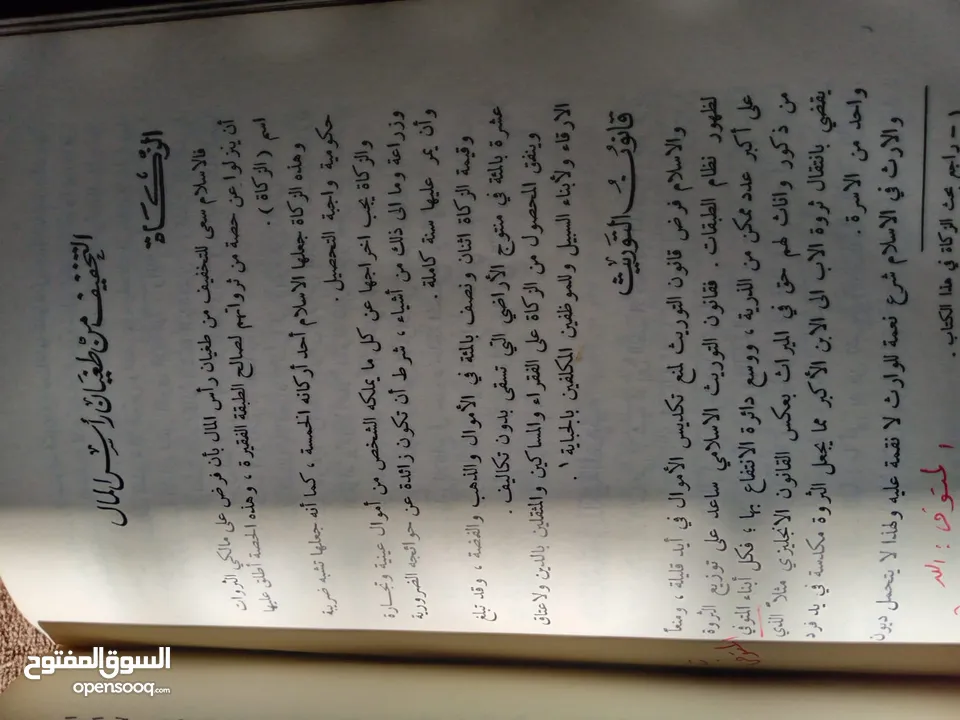 التخفيف من طغيان رأس المال
الزكاة
فالاسلام سعى للتخفيف من طغيان رأس المال بأن فرض على مالكي الثروات
أن ينزلوا عن حصة من ثرواتهم لصالح الطبقة الفقيرة ، وهذه الحصة أطلق عليها
اسم ( الزكاة ) .
وهذه الزكاة جعلها الاسلام أحد أركانه الخمسة ، كما أنه جعلها تشبه ضريبة
حكومية واجبة التحصيل .
والزكاة يجب اخراجها عن كل ما يملكه الشخص من أموال عينية وتجارة
وزراعة وما الى ذلك من أشياء ، شرط أن تكون زائدة عن حوائجه الضرورية
وأن يمر عليها سنة كاملة .
وقيمة الزكاة اثنان ونصف بالمئة في الأموال والذهب والفضة ، وقد تبلغ
عشرة بالمئة في منتوج الأراضي التي تسقى بدون تكاليف .
وينفق المحصول من الزكاة على الفقراء والمساكين والمثقلين بالدين ولاعتاق
الارقاء ولأبناء السبيل وللموظفين المكلفين بالجباية ١ .
قانون التوريث
والاسلام فرض قانون التوريث لمنع تكديس الأموال في أيد قليلة ، ومنعاً
لظهور نظام الطبقات . فقانون التوريث الاسلامي ساعد على توزيع الثروة
على أكبر عدد ممكن من الذرية ، ووسع دائرة الانتفاع بها ؛ فكل أبناء المتوفي
من ذكور واناث لهم حق في الميراث بعكس القانون الانجليزي مثلاً الذي
يقضي بانتقال ثروة الاب الى الابن الأكبر مما يجعل الثروة مكدسة في يد فرد
واحد من الاسرة .
والارث في الاسلام شرع نعمة للوارث لا نقمة عليه ولهذا لا يتحمل ديون
١ - راجع بحث الزكاة في هذا الكتاب .
المتوفى
السوق المفتوح
opensooq.com